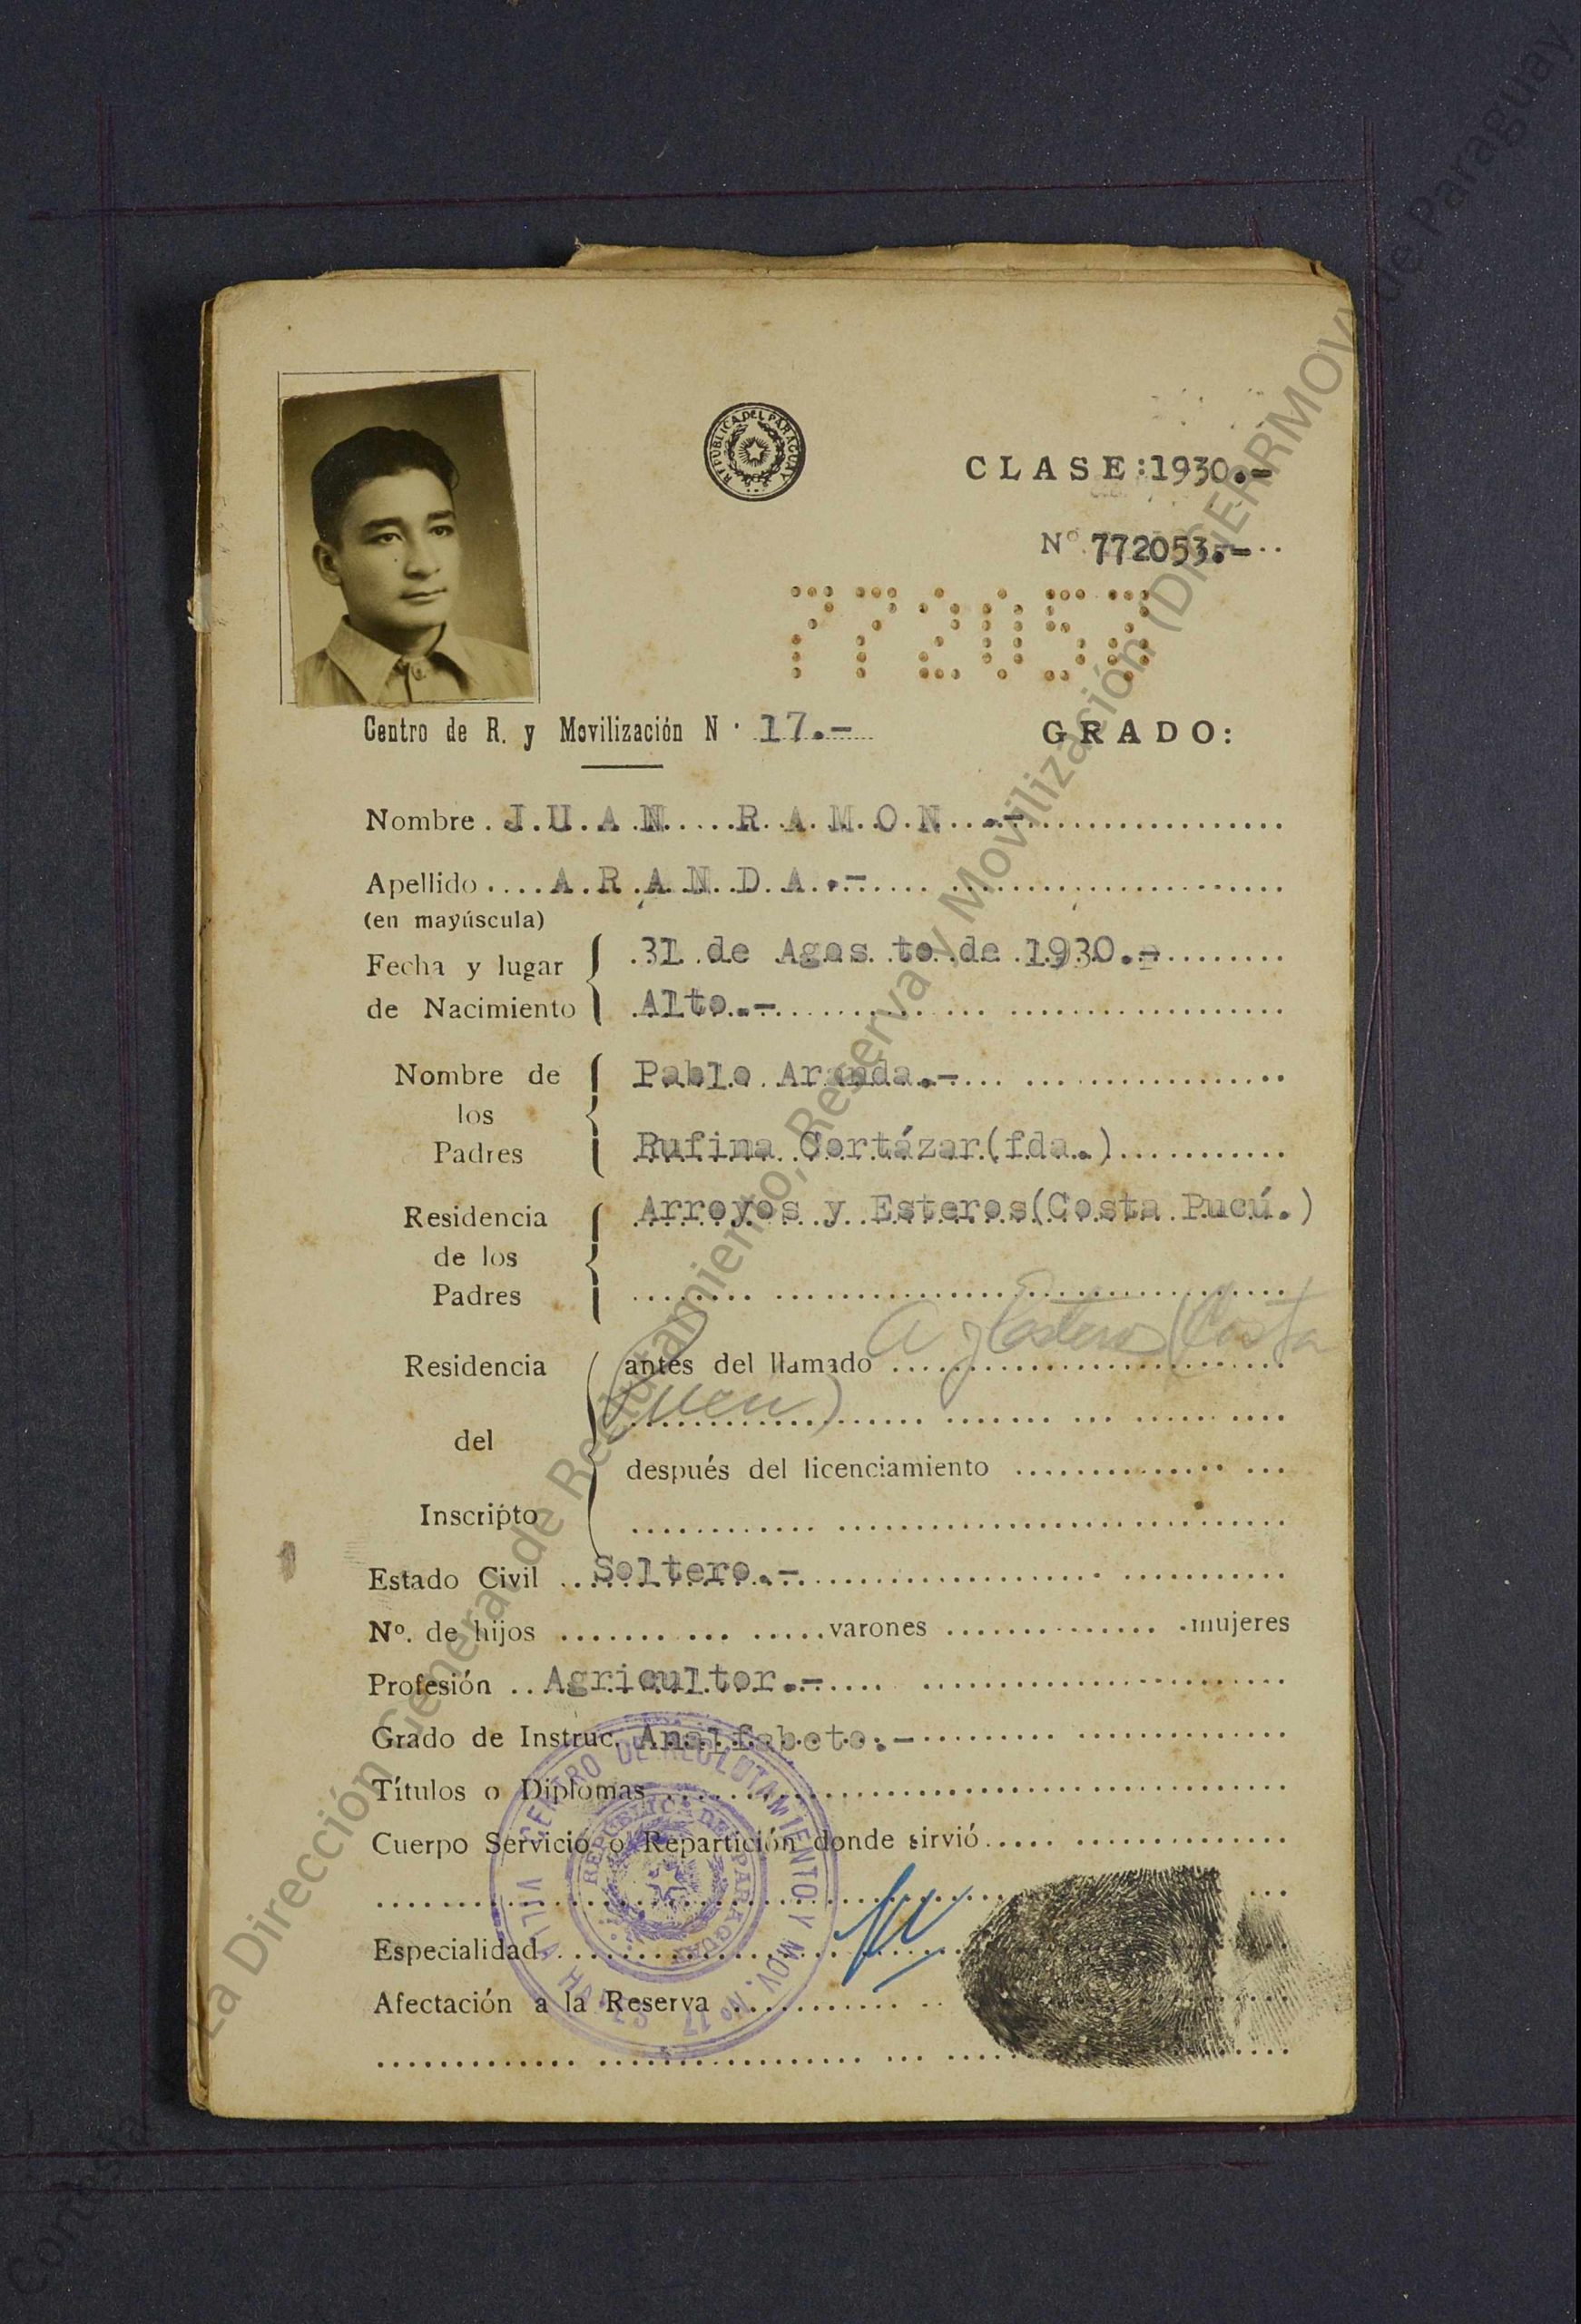 REPUBLICA DEL PARAGUAY
CLASE: 1930.-
Nº 772053.-
772053
Centro de R. y Movilización N· 17.-
GRADO:
Nombre. JUAN RAMON .-
Apellido .... ARANDA.-
(en mayúscula)
Fecha y lugar de Nacimiento
31 de Agosto de 1930.-
Alto.-
Nombre de los Padres
Pablo Aranda.-
Rufina Cortázar(fda.)
Residencia de los Padres
Arroyos y Esteros(Costa Pucú.)
Residencia del Inscripto
antes del llamado A y Esteros (Costa
después del licenciamiento
Estado Civil .. Soltero.-
Nº. de hijos varones mujeres
Profesión .. Agricultor.-
Grado de Instruc. Analfabeto.-
Títulos o Diplomas
Cuerpo Servicio o Repartición donde sirvió
Especialidad
Afectación a la Reserva
CENTRO DE RECLUTAMIENTO Y MOV. Nº 17
REPUBLICA DEL PARAGUAY
Cortesía La Dirección General de Reclutamiento, Reserva y Movilización (DIGERRMOV) de Paraguay